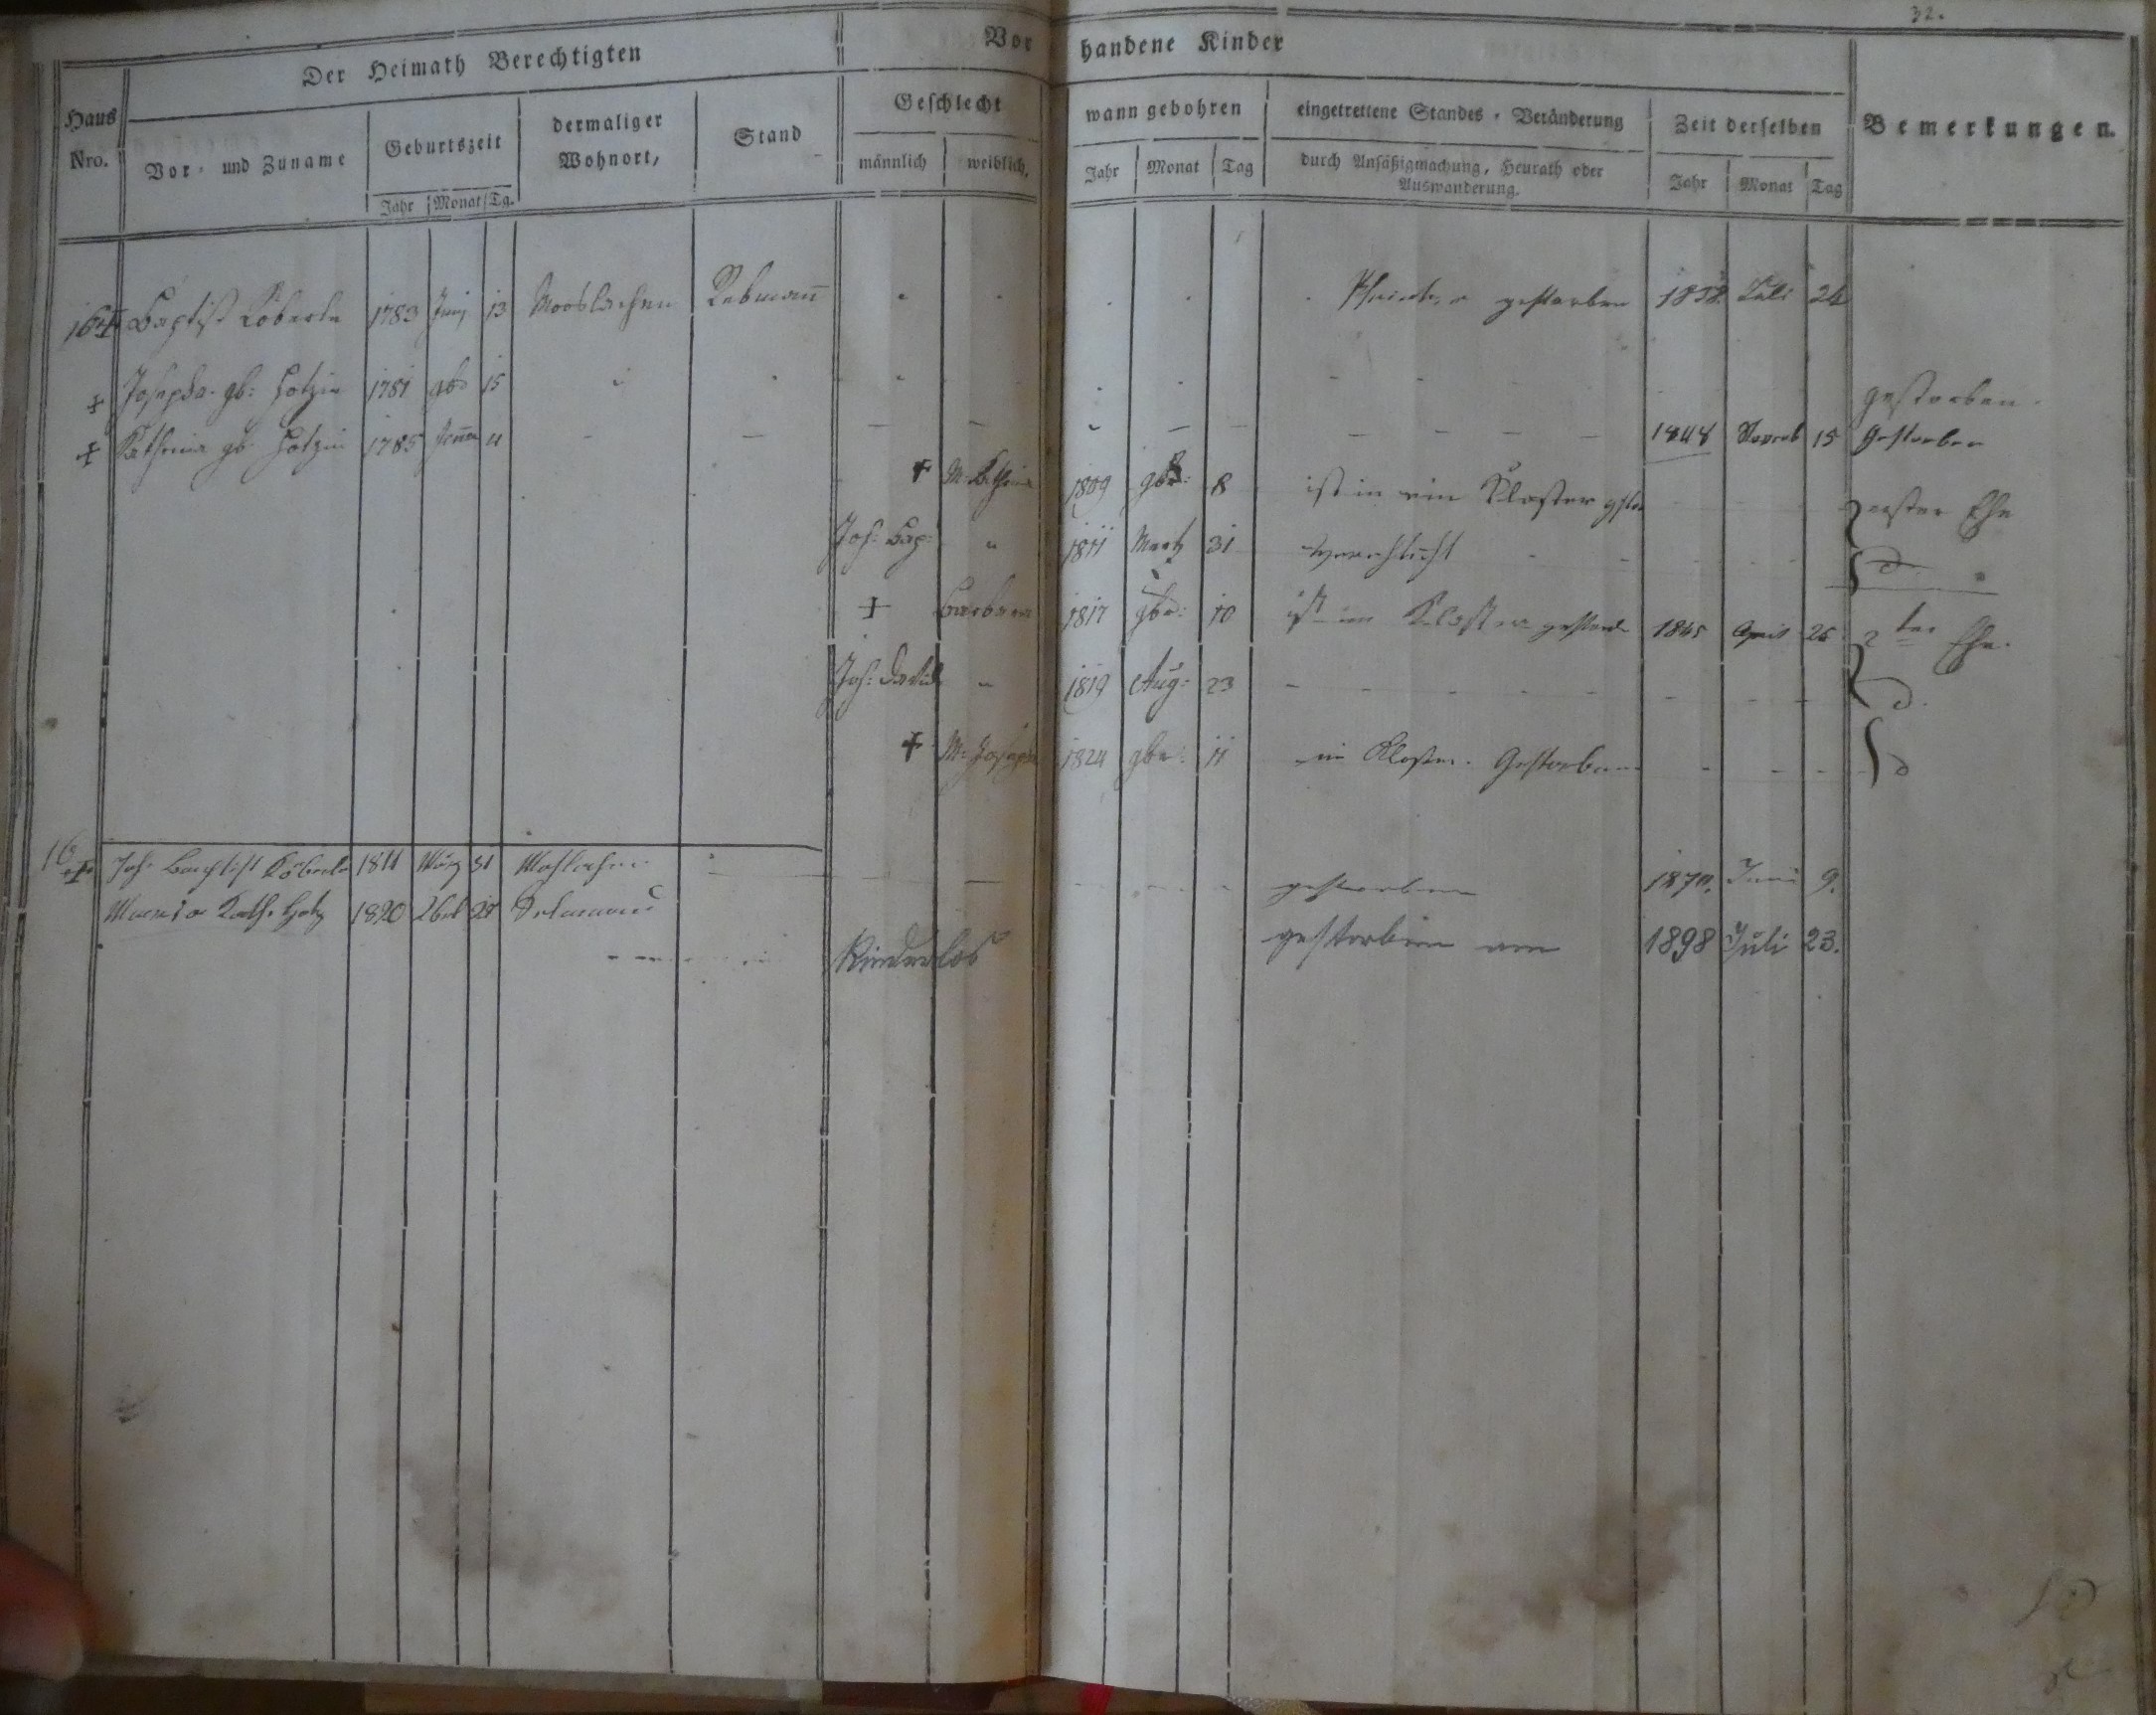 32.
Der Heimath Berechtigten
Vorhandene Kinder
Haus Nro.
Vor- und Zuname
Geburtszeit
Jahr Monat Tg.
dermaliger Wohnort,
Stand
Geschlecht
männlich weiblich,
wann gebohren
Jahr Monat Tag
eingetrettene Standes-Veränderung
durch Ansäßigmachung, Heurath oder Auswanderung.
Zeit derselben
Jahr Monat Tag
Bemerkungen.
16 Baptist Köberle 1783 Juny 13 Mooslachen Rebmann gestorben 1838 Juli 24
+ Josepha gb: Hotzin 1781 gbr 15 gestorben.
+ Katharina gb. Hotzin 1785 11 1848 Novemb 15 Gestorben
+ M: 1809 8 ist in ein Kloster erster Ehe
Joh: Bap: " 1811 Martz 31 verehlicht
+ Barbara 1817 gbr: 10 ist im Kloster gestorb 1845 April 25 2ter Ehe.
Joh: David " 1819 Aug: 23 d.
+ M: Josepha 1824 gbr: 11 im Kloster. Gestorben d
16 + Joh. Baptist Köberle 1811 März 31 gestorben 1870. Juni 9.
Maria Kath. Hotz 1820 gestorben am 1898 Juli 23.
Kinderlos